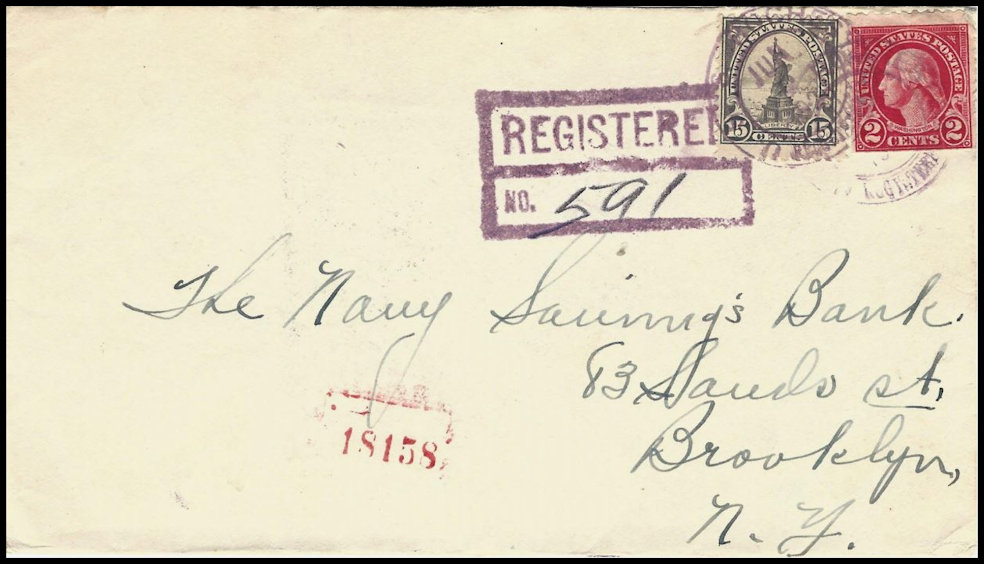 UNITED STATES POSTAGE
LIBERTY
15 15
CENTS
UNITED STATES POSTAGE
WASHINGTON
2 2
CENTS
REGISTERED
NO. 591
The Navy Saving's Bank.
83 Sands st,
Brooklyn,
N. Y.
18158